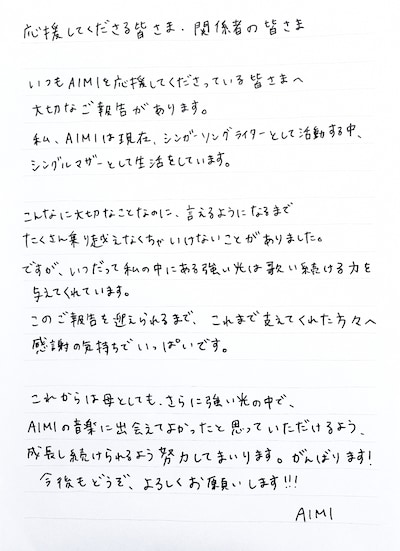 応援してくださる皆さま・関係者の皆さま
いつもAIMIを応援してくださっている皆さまへ
大切なご報告があります。
私、AIMIは現在、シンガーソングライターとして活動する中、
シングルマザーとして生活をしています。
こんなに大切なことなのに、言えるようになるまで
たくさん乗り越えなくちゃいけないことがありました。
ですが、いつだって私の中にある強い光は歌い続ける力を
与えてくれています。
このご報告を迎えられるまで、これまで支えてくれた方々へ
感謝の気持ちでいっぱいです。
これからは母としても、さらに強い光の中で、
AIMIの音楽に出会えてよかったと思っていただけるよう、
成長し続けられるよう努力してまいります。がんばります！
今後もどうぞ、よろしくお願いします!!!
AIMI